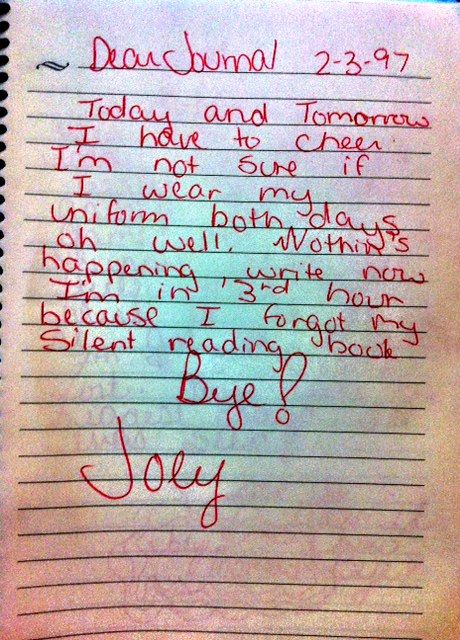 ~ Dear Journal 2-3-97
Today and Tomorrow
I have to cheer.
I'm not sure if
I wear my
uniform both days
oh well. Nothin's
happening, write now
I'm in 3rd hour
because I forgot my
Silent reading book
Bye!
Joey